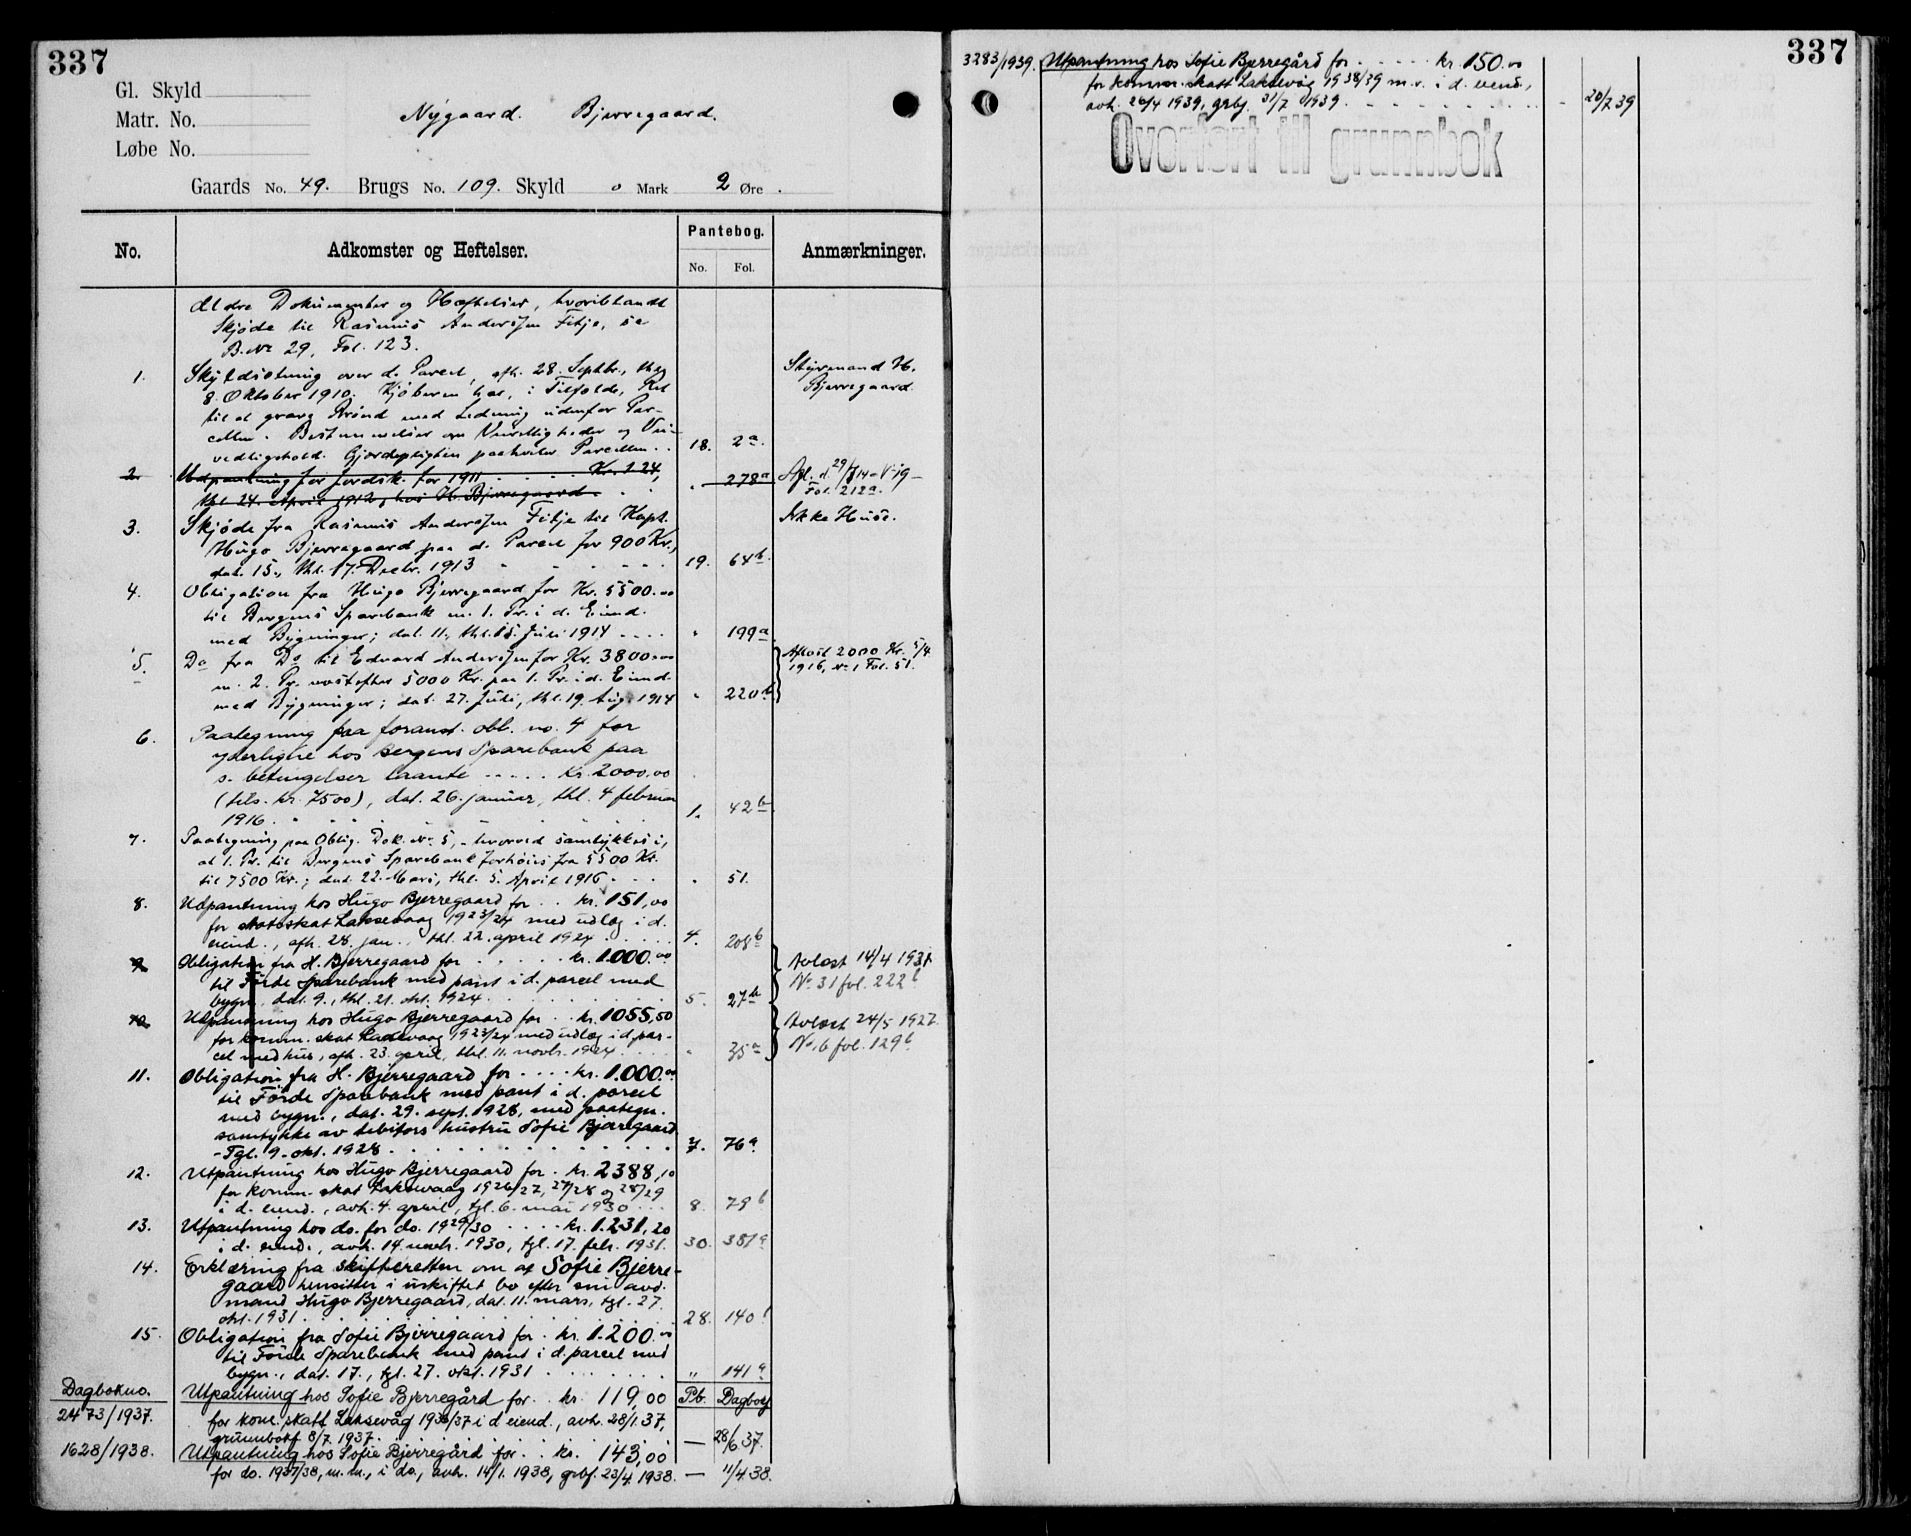 337
Gl. Skyld
Matr. No.
Løbe No.
Nygaard. Bjerregaard.
Gaards No. 49. Brugs No. 109. Skyld 0 Mark 2 Øre.
No. Adkomster og Heftelser. Pantebog. Anmærkninger.
No. Fol.
Ældre Dokumenter og Hæftelser, hvoriblandt
Skjøde til Rasmus Anderssen Fitje, se
B. No 29, Fol. 123.
1. Skyldsetning over d. Parcel, afh. 28. Septbr., thlg Styrmand H.
8. Oktober 1910. Kjøberen har, i Tilfælde, Ret Bjerregaard.
til at grave Brønd med Ledning udenfor Par-
cellen. Bestemmelser om Veirettigheder og Vei-
vedligehold. Gjerdepligten paahviler Parcellen.. 18. 2a.
2. Udpantning for Jordsk. for 1911 . . . . Kr. 1.24, " 278a Afl. d. 29/7 14 - No 19 -
thl. 24. April 1912, hos H. Bjerregaard. . . Fol. 212a.
3. Skjøde fra Rasmus Anderssen Fitje til Kapt. Ikke Huse.
Hugo Bjerregaard paa d. Parcel for 900 Kr.,
dat. 15., thl. 17. Decbr. 1913 19. 64b.
4. Obligation fra Hugo Bjerregaard for Kr. 5500.00
til Bergens Sparebank m. 1. Pr. i d. Eiend.
med Bygninger; dat. 11., thl. 15. Juli 1914 .... " 199a
5. Do fra Do til Edvard Anderssen for Kr. 3800.00 Aflæst 2000 Kr. 5/4
m. 2. Pr. næstefter 5000 Kr. paa 1. Pr. i d. Eiend. 1916, No 1 Fol. 51.
med Bygninger; dat. 27. Juli, thl. 19. Aug. 1914 " 220b
6. Paategning paa foranst. obl. no. 4 for
yderligere hos Bergens Sparebank paa
s. betingelser laante ..... Kr. 2000.00
(tils. kr. 7500), dat. 26. januar, thl. 4 februar
1916. 1. 42b
7. Paategning paa Oblig. Dok. No 5, - hvorved samtykkes i,
at 1. Pr. til Bergens Sparebank forhøies fra 5500 Kr.
til 7500 Kr.; dat. 22. Mars, thl. 5. April 1916. . . " 51.
8. Udpantning hos Hugo Bjerregaard for .. kr. 151,00
for statsskat Laksevaag 1923/24 med udlæg i d.
eiend., afh. 28. jan., thl. 22. april 1924 ..... 4. 208b
9. Obligation fra H. Bjerregaard for ..... kr. 1.000.00 Avlæst 14/4 1931
til Førde Sparebank med pant i d. parcel med No 31 fol. 222b
bygn., dat. 9., thl. 21. okt. 1924 5. 27b
10. Udpantning hos Hugo Bjerregaard for .. kr. 1055,50 Avlæst 24/5 1927.
for komm. skat Laksevaag 1923/24 med udlæg i d. par- No. 6 fol. 129b
cel med hus, afh. 23. april, thl. 11. novbr. 1924. " 35a
11. Obligation fra H. Bjerregaard for .... kr. 1.000.00
til Førde Sparebank med pant i d. parcel
med bygn., dat. 29. sept. 1928, med paategn.
samtykke av debitors hustru Sofie Bjerregaard
- Tgl. 9. okt. 1928. 7. 76a
12. Utpantning hos Hugo Bjerregaard for . kr. 2388,10
for komm. skat Laksevaag 1926/27, 27/28 og 28/29
i d. eiend., avh. 4. april, tgl. 6. mai 1930 ... 8. 79b
13. Utpantning hos do. for do. 1929/30 .... kr. 1.231,20
i d. eiend., avh. 14. novb. 1930, tgl. 17. febr. 1931. 30. 387a
14. Erklæring fra skifteretten om at Sofie Bjerre-
gaard hensitter i uskiftet bo efter sin avd.
mand Hugo Bjerregaard, dat. 11. mars, tgl. 27.
okt. 1931. 28. 140b
15. Obligation fra Sofie Bjerregaard for . kr. 1.200.00
til Førde Sparebank med pant i d. parcel med
bygn., dat. 17., tgl. 27. okt. 1931 " 141a
Dagbokno. Utpantning hos Sofie Bjerregård for. . kr. 119,00 Pb. Dagbog
2473/1937. for kom. skatt Laksevåg 1936/37 i d eiend., avh. 28/1.37,
grunnbokf 8/7 1937. — 28/6.37.
1628/1938. Utpantning hos Sofie Bjerregård for . . kr. 143,00
for do. 1937/38, m.m., i do., avh. 14/1. 1938, grbf. 23/4. 1938. — 11/4.38.
337
3283/1939. Utpantning hos Sofie Bjerregård for - - - - kr. 150.00
for komm. skatt Laksevåg 1938/39 m.v. i d. eiend.,
avh. 26/4 1939, grbf. 31/7 1939. 20/7.39
Overført til grunnbok